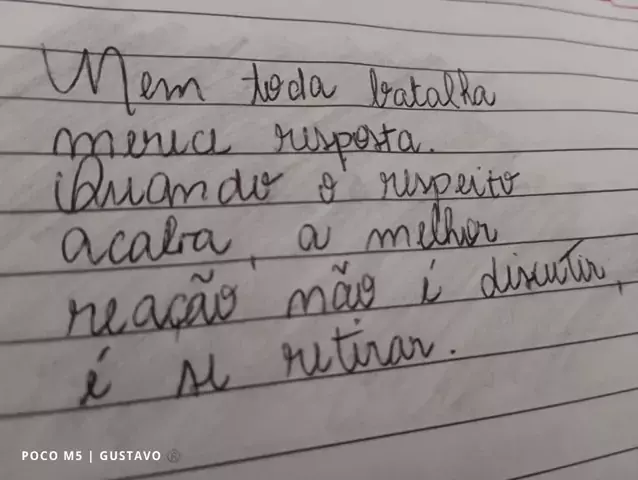 Nem toda batalha
merece resposta.
Quando o respeito
acaba, a melhor
reação não é discutir,
é se retirar.
POCO M5 | GUSTAVO ®